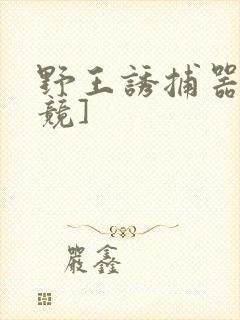 野王誘捕器
競]
嚴鑫